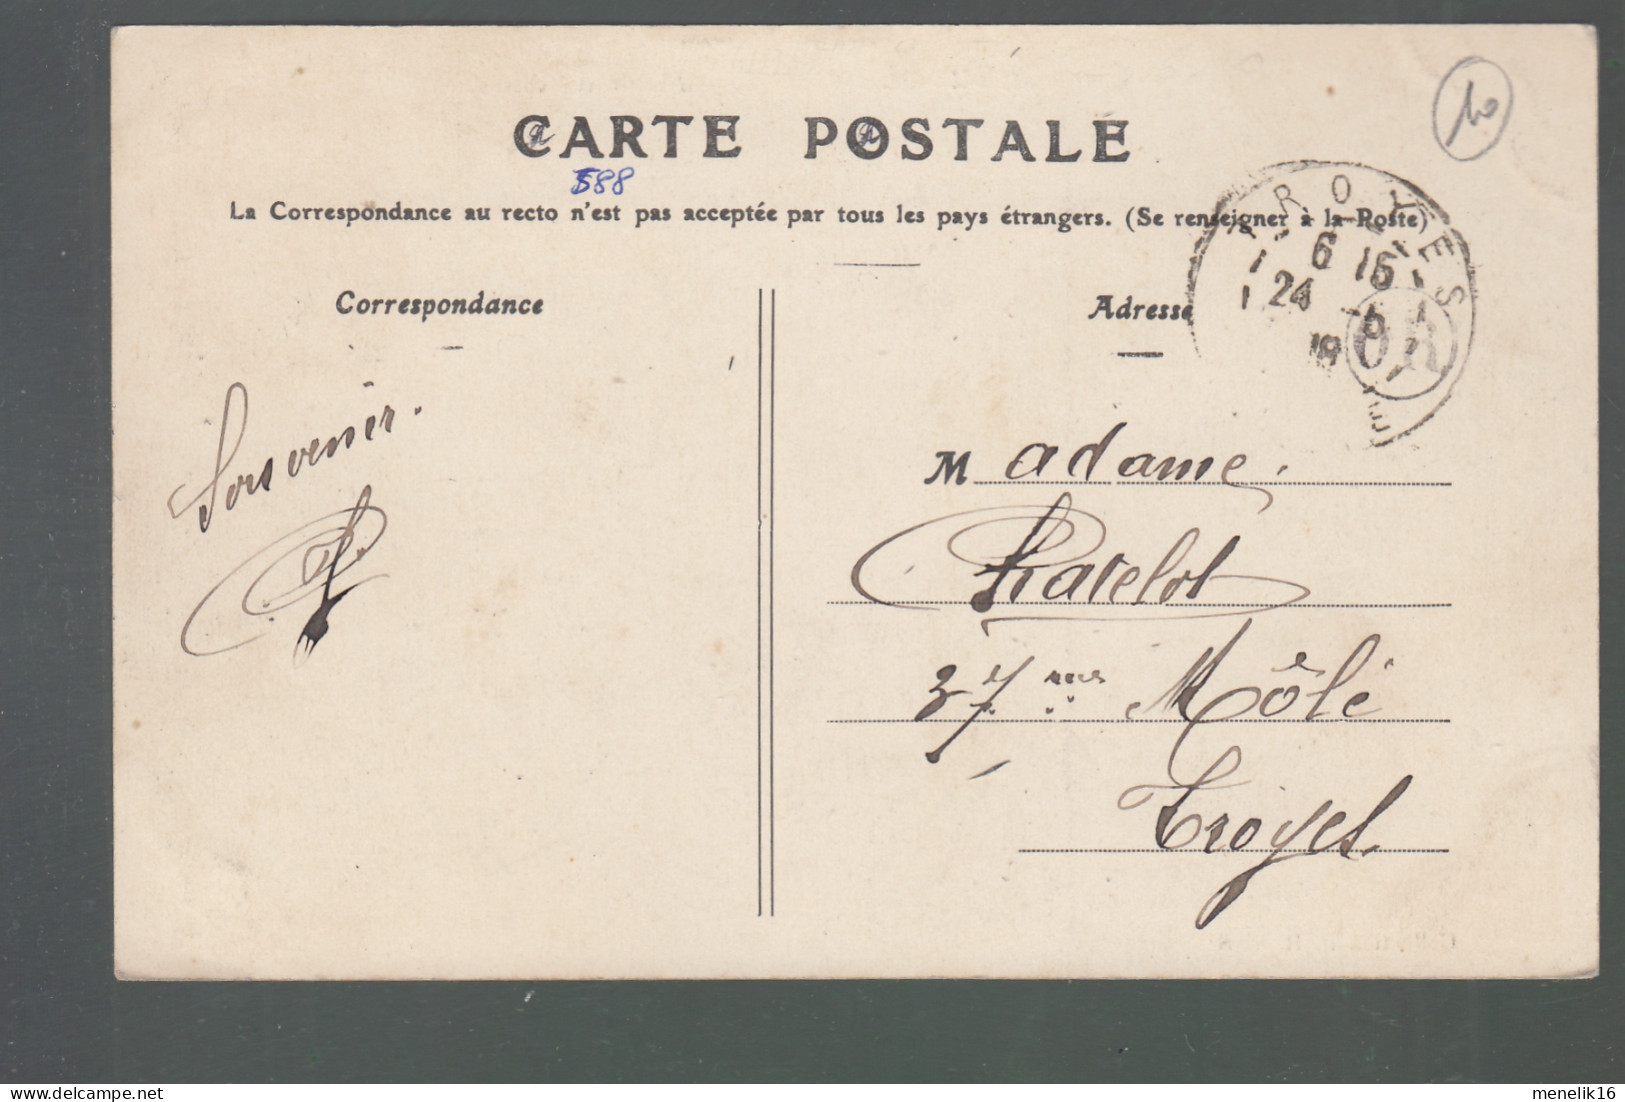 CARTE POSTALE
588
La Correspondance au recto n'est pas acceptée par tous les pays étrangers. (Se renseigner à la Poste)
Correspondance
Adresse
TROYES
6 15
24
OR
10
Souvenir.
Madame.
Ratelot
37 rue Môlé
Troyes
menelik16